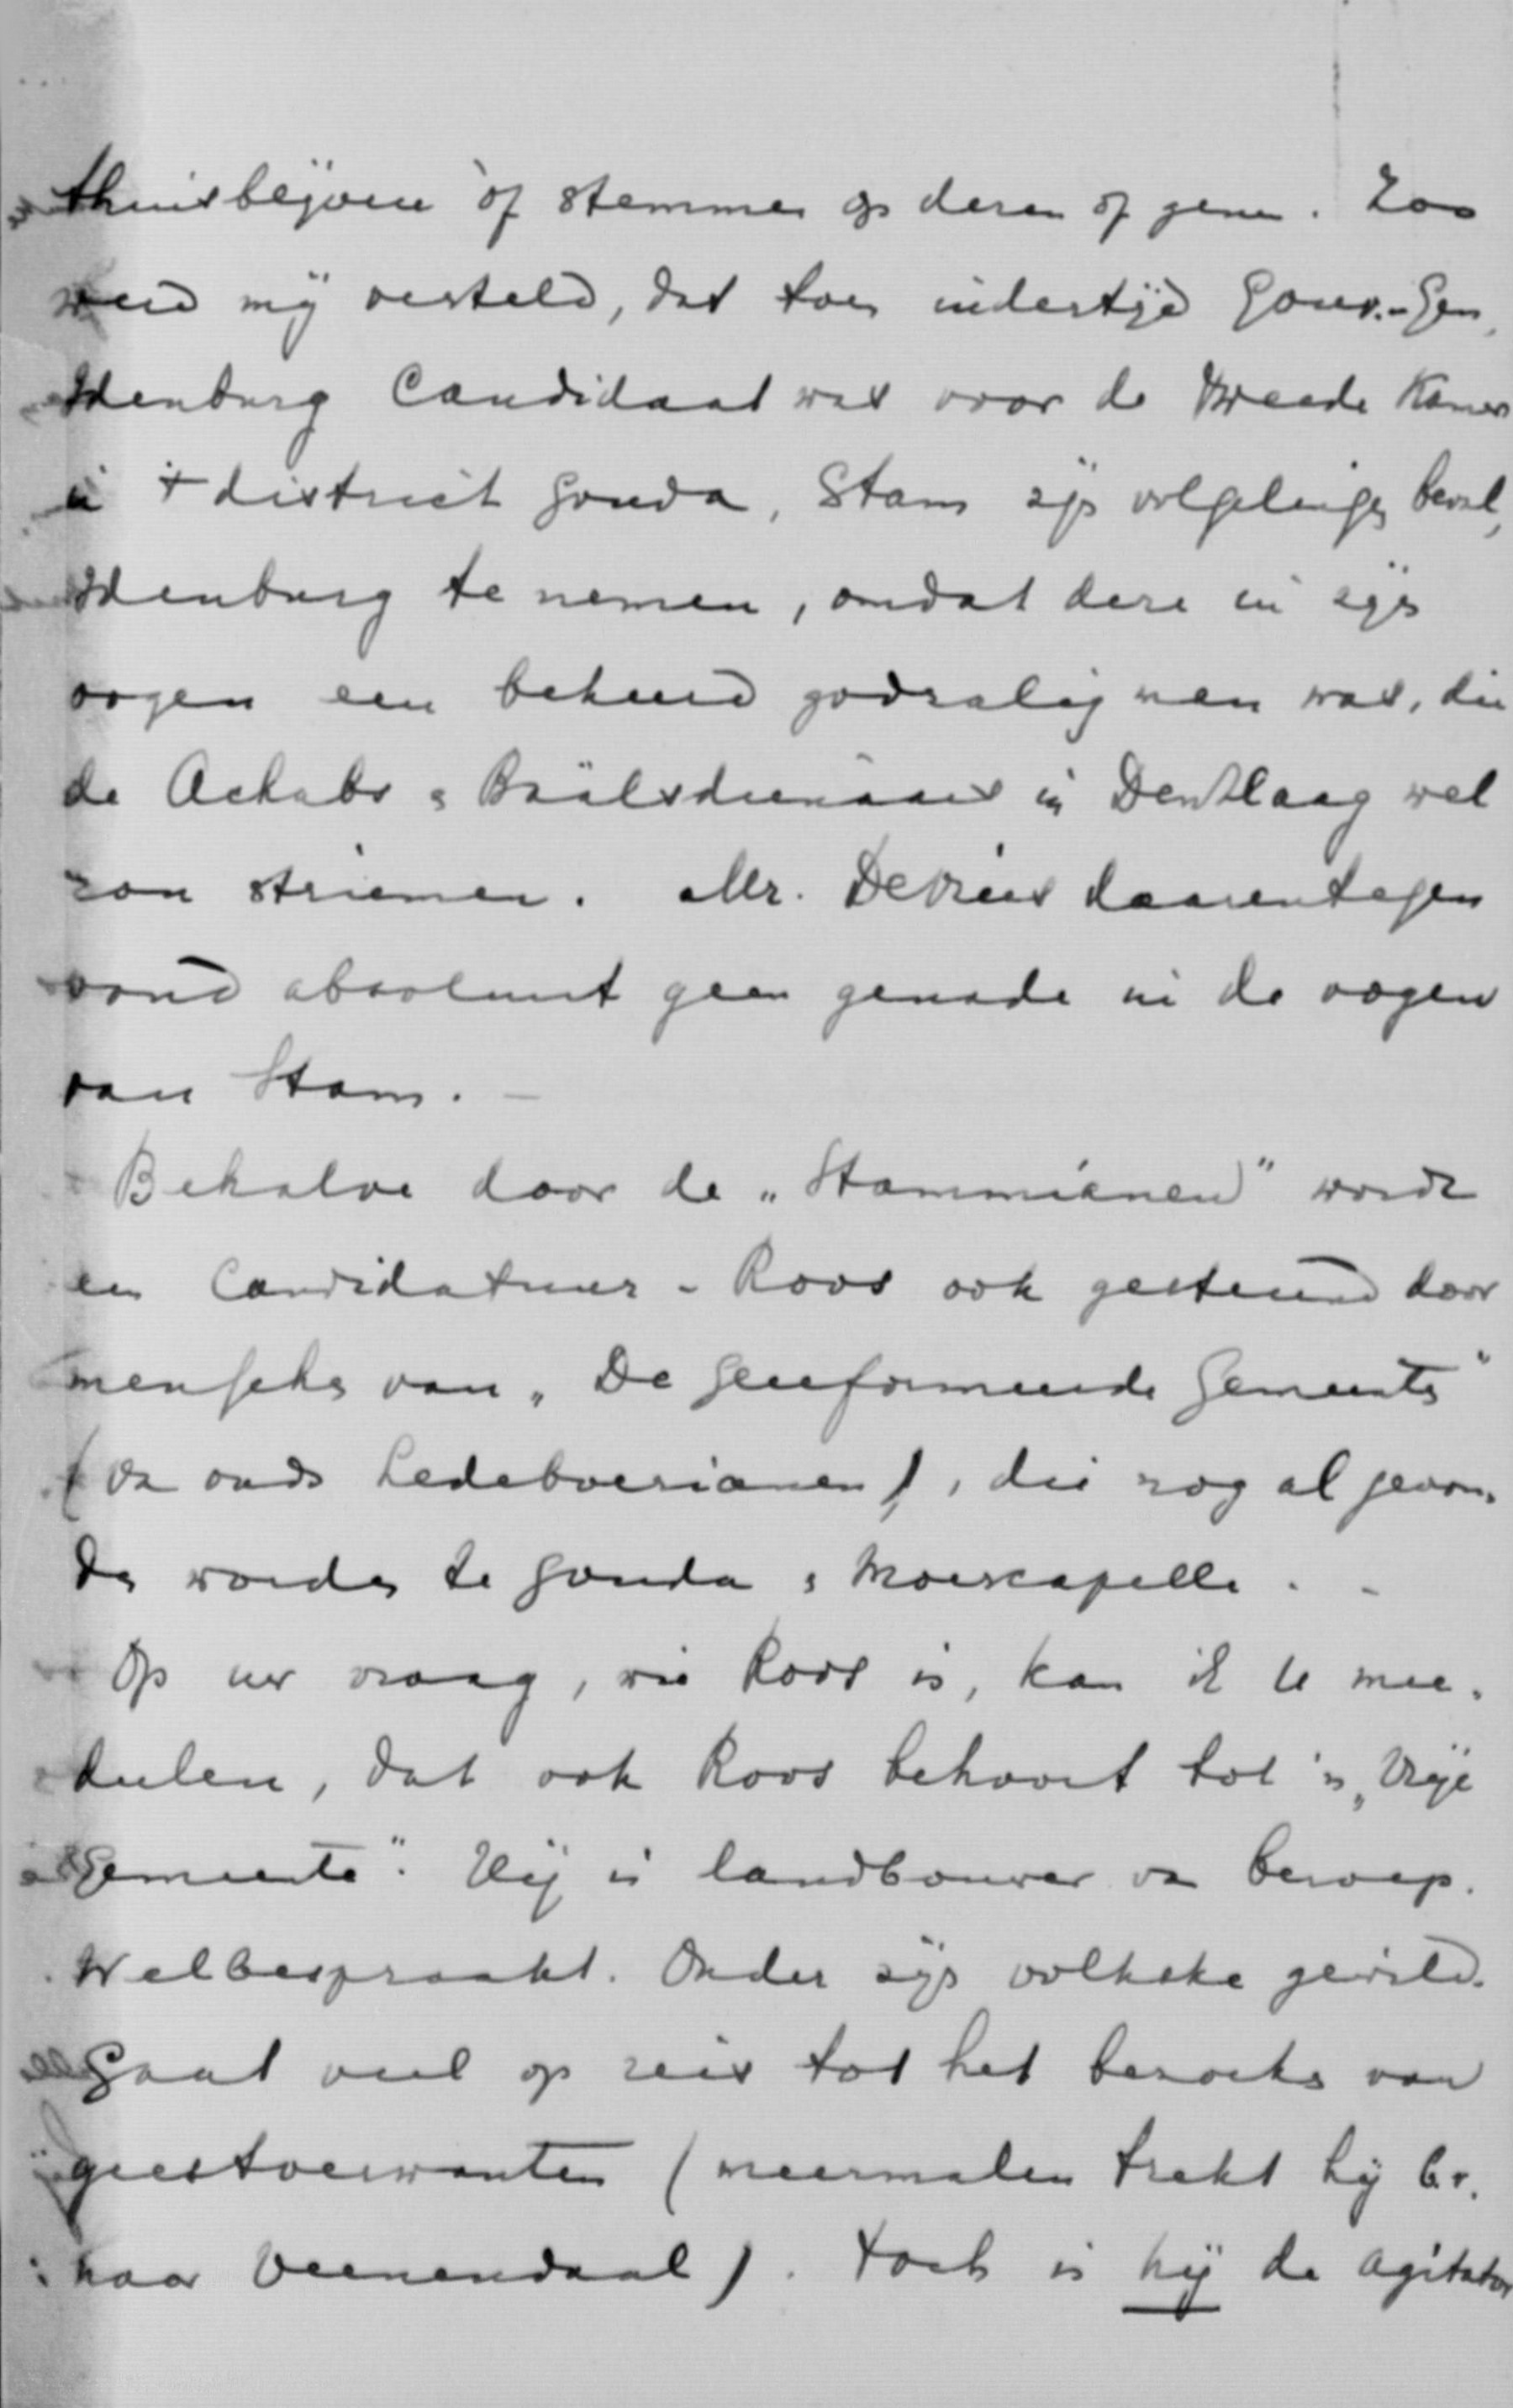 thuisblijven òf stemmen op dezen of genen. Zoo
werd mij verteld, dat toen indertijd Gouv.-Gen.
Idenburg Candidaat was voor de Tweede Kamer
in 't district Gouda, Stam zijn volgelingen beval,
Idenburg te nemen, omdat deze in zijn
oogen een bekeerd godzalig man was, die
de Achabs & Baälsdienaars in Den Haag wel
zou striemen. Mr. De Vries daarentegen
vond absoluut geen genade in de oogen
van Stam. -
Behalve door de „Stammianen" wordt
een Candidatuur - Roos ook gesteund door
menschen van „De Gereformeerde Gemeente"
(de oude Ledeboerianen), die nog al gevon-
den worden te Gouda & Moerkapelle. -
Op uw vraag, wie Roos is, kan ik U mee-
deelen, dat ook Roos behoort tot 'n „Vrije
Gemeente". Hij is landbouwer van beroep.
Welbespraakt. Onder zijn volkske gewild.
Gaat veel op reis tot het bezoeken van
geestverwanten (meermalen trekt hij b.v.
naar Veenendaal). Toch is hij de agitator